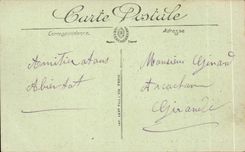 Carte Postale
Correspondance
Adresse
Amitiés à tous
A bientôt
Monsieur Girard
Arcachon
Gironde